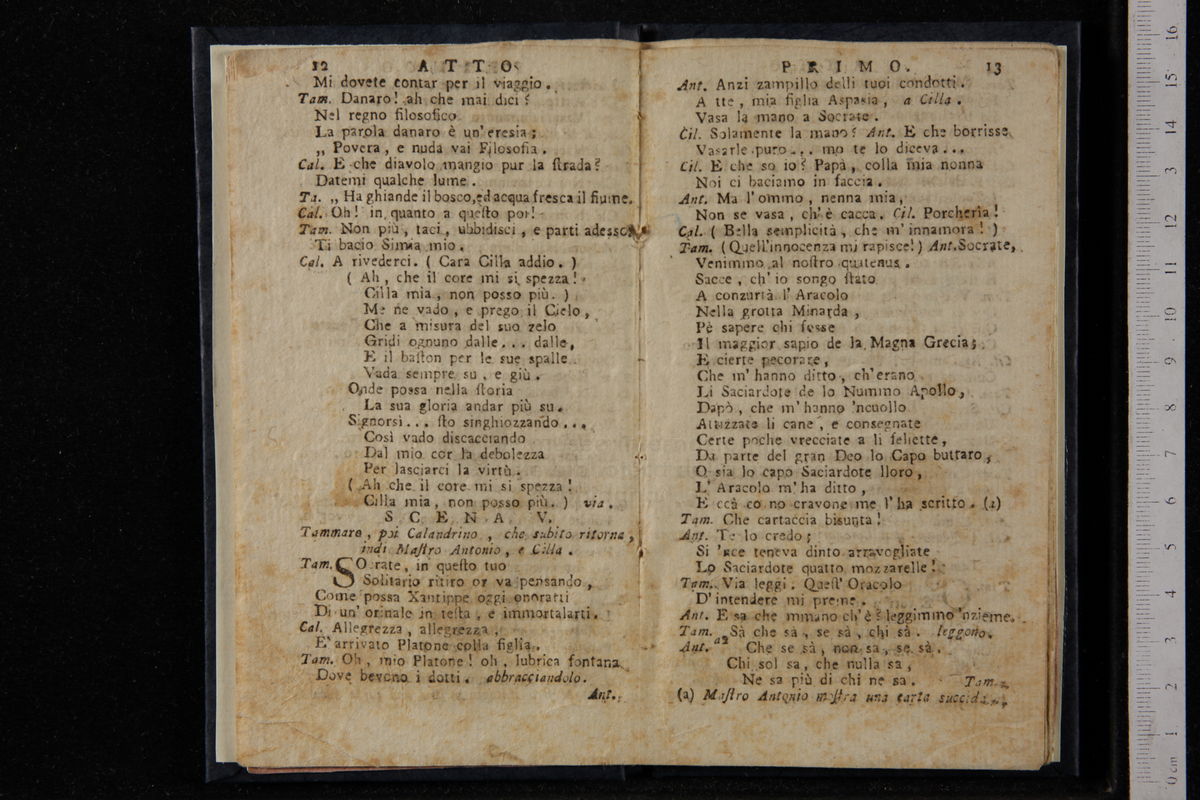 12 ATTO
Mi dovete contar per il viaggio.
Tam. Danaro! ah che mai dici?
Nel regno filosofico
La parola danaro è un'eresia;
„ Povera, e nuda vai Filosofia.
Cal. E che diavolo mangio pur la ſtrada?
Datemi qualche lume.
Ta. „ Ha ghiande il bosco, ed acqua fresca il fiume.
Cal. Oh! in quanto a queſto poi!
Tam. Non più, taci, ubbidisci, e parti adesso
Ti bacio Simia mio.
Cal. A rivederci. ( Cara Cilla addio. )
( Ah, che il core mi si spezza!
Cilla mia, non posso più. )
Me ne vado, e prego il Cielo,
Che a misura del suo zelo
Gridi ognuno dalle... dalle,
E il baſton per le sue spalle
Vada sempre su, e giù.
Onde possa nella ſtoria
La sua gloria andar più su.
Signorsì... ſto singhiozzando...
Così vado discacciando
Dal mio cor la debolezza
Per lasciarci la virtù.
( Ah che il core mi si spezza!
Cilla mia, non posso più. ) via.
SCENA V.
Tammaro, poi Calandrino, che subito ritorna,
indi Maſtro Antonio, e Cilla.
Tam. SOcrate, in queſto tuo
Solitario ritiro or va pensando,
Come possa Xantippe oggi onorarti
Di un' orinale in teſta, e immortalarti.
Cal. Allegrezza, allegrezza.
E' arrivato Platone colla figlia.
Tam. Oh, mio Platone! oh, lubrica fontana
Dove bevono i dotti. abbracciandolo.
Ant.
PRIMO. 13
Ant. Anzi zampillo delli tuoi condotti.
A tte, mia figlia Aspasia, a Cilla.
Vasa la mano a Socrate.
Cil. Solamente la mano? Ant. E che borrisse
Vasarle puro... mo te lo diceva...
Cil. E che so io? Papà, colla mia nonna
Noi ci baciamo in faccia.
Ant. Ma l'ommo, nenna mia,
Non se vasa, ch'è cacca. Cil. Porcheria!
Cal. ( Bella semplicità, che m'innamora! )
Tam. ( Quell'innocenza mi rapisce!) Ant. Socrate,
Venimmo al noſtro quatenus.
Sacce, ch'io songo ſtato
A conzurtà l'Aracolo
Nella grotta Minarda,
Pè sapere chi fosse
Il maggior sapio de la Magna Grecia;
E cierte pecorare,
Che m'hanno ditto, ch'erano
Li Saciardote de lo Nummo Apollo,
Dapò, che m'hanno 'ncuollo
Attizzate li cane, e consegnate
Certe poche vrecciate a li feliette,
Da parte del gran Deo lo Capo buttaro,
O sia lo capo Saciardote lloro,
L'Aracolo m'ha ditto,
E ccà co no cravone me l'ha scritto. (a)
Tam. Che cartaccia bisunta!
Ant. Te lo credo;
Si 'nce teneva dinto arravogliate
Lo Saciardote quatto mozzarelle!
Tam. Via leggi. Queſt'Oracolo
D'intendere mi preme.
Ant. E sa che mmano ch'è? leggimmo 'nzieme.
Tam. Sà che sà, se sà, chi sà. leggono.
Ant. a2 Che se sà, non sa, se sà.
Chi sol sa, che nulla sa,
Ne sa più di chi ne sa. Tam.
(a) Maſtro Antonio moſtra una carta succida.